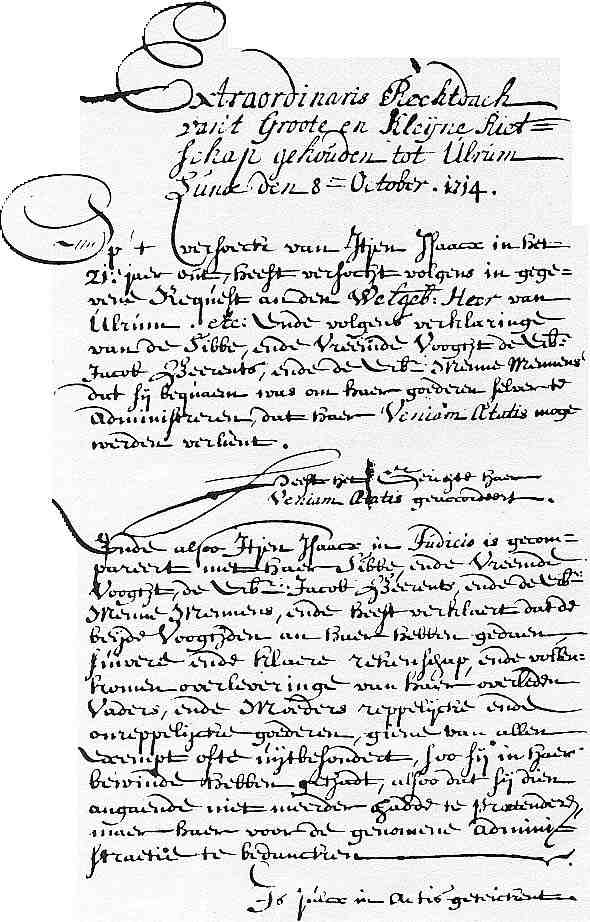 Extraordinaris Rechtdach
van't Groote en Kleijne Riet=
schap gehouden tot Ulrum
den 8 October. 1714.
Op 't versoeck van Itjen Isaacx in het
21e jaer out, heeft versocht volgens in gege=
vene Request an den Welgeb: Heer van
Ulrum etc: ende volgens verklaringe
van de Sibbe, ende Vreemde Voogtt de Eib:
Jacob Beerents, ende de Eib: Menne Mennens
dat sij bequaem was om haer goederen selver te
Administreren, dat haer Veniam Ætatis moge
werden verlient.
Heeft het Gerichte haer
Veniam Ætatis geaccordeert.
Ende alsoo Itjen Isaacx in Judicio is gecom=
pareert met haer Sibbe, ende Vreemde
Voogtt, de Eib: Jacob Beerents, ende de Eib:
Menne Mennens, ende heeft verklaert dat de
beijde Voogtden an haer hebben gedaen
suivere ende klaere rekenschap, ende volken=
komen overleveringe van haer overleden
Vaders, ende Moeders reppelijcke ende
onreppelijcke goederen, giene van allen
exempt ofte uijtbesondert, soo sij in haer
bewinde hebben gehadt, alsoo dat sij dien
angaende niet meerder hadde te prætenderen,
maer haer voor de genomene Admini=
straetie te bedancken
Is sulcx in Actis geteickent.